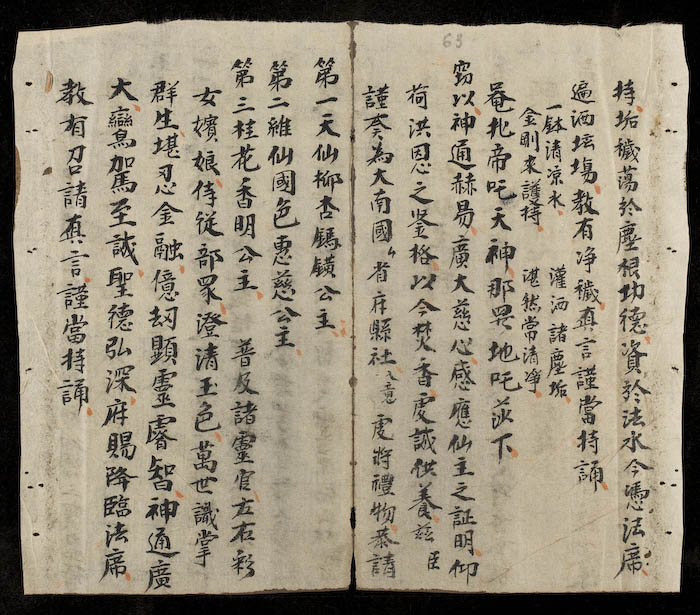 63
持垢穢蕩於塵根功德資於法水今憑法席
遍洒坛塲教有净穢真言謹當持誦
一鉢清凉水 灌洒諸塵垢
金剛來護持 湛然常清净
菴扎帝吒天神那 地吒 下
窃以神通赫昜廣大慈心感應仙主之証明仰
荷洪恩之鉴格以今焚香虔誠供養兹臣
謹奏為大南國 省府縣社 意 虔將禮物恭請
第一天仙柳杏 公主
第二維仙國色惠慈公主
第三桂花香明公主 普及諸靈官左右彩
女嬪娘侍従部眾澄清玉色萬世識掌
群生堪忍金融億刼顯靈睿智神通廣
大鸞加馬至誠聖德弘深府賜降臨法席
教有召諸真言謹當持誦